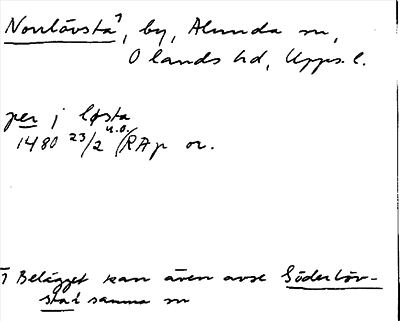 Norrlövsta¹, by, Alunda sn,
Olands hd, Upps. l.
per j løsta
u.o.
1480 23/2 RAp or.
1 Belägget kan även avse Söderlöv-
sta i samma sn